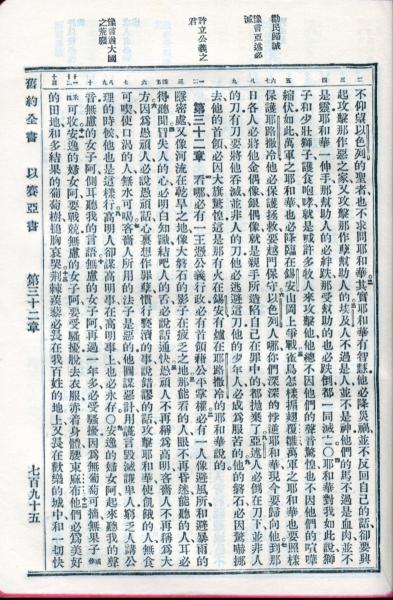 勸民歸誠
豫言亞述必滅
許立公義之君
豫言猶大國之荒廢
不仰望以色列的聖者也不求問耶和華其實耶和華有智慧他必降災禍並不反回自己的話卻要興
起攻擊那作惡之家又攻擊那作孽幫助人的埃及人不過是人並不是神他們的馬不過是血肉並不
是靈耶和華一伸手那幫助人的必跌那受幫助的也必跌倒都一同滅亡○耶和華對我如此說獅
子和少壯獅子護食咆哮就是喊許多牧人來攻擊他他總不因他們的聲音驚惶也不因他們的喧嘩
縮伏如此萬軍之耶和華也必降臨在錫安山岡上爭戰雀鳥怎樣搧翅覆雛萬軍之耶和華也要照樣
保護耶路撒冷他必保護拯救要越門保守以色列人哪你們深深的悖逆耶和華現今要歸向他到那
日各人必將他金偶像銀偶像就是親手所造陷自己在罪中的都拋棄了亞述人必倒在刀下並非人
的刀有刀要將他吞滅並非人的刀他必逃避這刀他的少年人必成為服苦的他的磐石必因驚嚇挪
去他的首領必因大旗驚惶這是那有火在錫安有爐在耶路撒冷的耶和華說的
第三十二章 看哪必有一王憑公義行政必有首領藉公平掌權必有一人像避風所和避暴雨的
隱密處又像河流在乾旱之地像大磐石的影子在疲乏之地那能看的人眼不再昏迷能聽的人耳必
得聽聞冒失人的心必明白知識結吧人的舌必說話通快愚頑人不再稱為高明吝嗇人不再稱為大
方因為愚頑人必說愚頑話心裏想作罪孽慣行褻瀆的事說錯謬的話攻擊耶和華使飢餓的人無食
可喫使口渴的人無水可喝吝嗇人所用的法子是惡的他圖謀惡計用謊言毀滅謙卑人窮乏人講公
理的時候他也是這樣行高明人卻謀高明事在高明事上也必永存○安逸的婦女阿起來聽我的聲
音無慮的女子阿側耳聽我的言語無慮的女子阿再過一年多必受騷擾因為無葡萄可摘無果子
可收安逸的婦女阿要戰兢無慮的女子阿要受騷擾脫去衣服赤着身體腰束麻布他們必為美好
的田地和多結果的葡萄樹搥胸哀哭荊棘蒺藜必長在我百姓的地上又長在歡樂的城中和一切快
舊約全書 以賽亞書 第三十二章 七百九十五